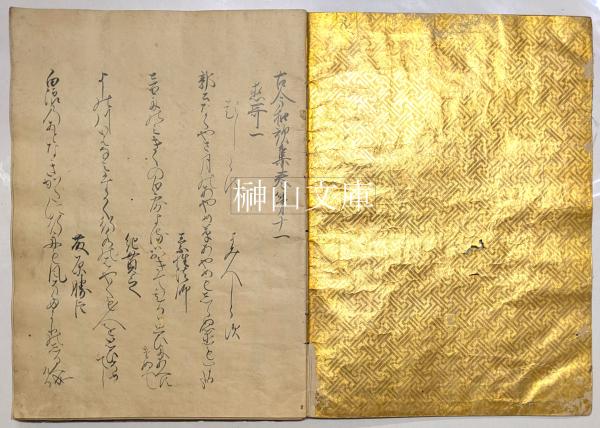 古今和歌集巻第十一
恋哥一
題しらす　よみ人しらす
郭公なくやさ月のあやめ草あやめもしらぬ恋もする哉
素性法師
音にのみきくの白露よるはおきてひるは思ひにあへす
けぬへし
紀貫之
よしの川いは浪たかく行水のはやくそ人を思ひそめてし
藤原勝臣
白浪のあとなきかたに行舟も風そたよりのしるへ成ける
榊山文庫